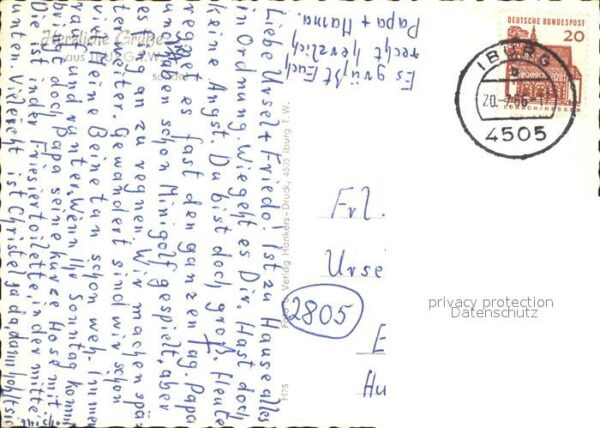 Herzliche Grüße
aus IBURG T.W.
sendet
Liebe Ursel + Friedo! Ist zu Hause alles
in Ordnung. Wie geht es Dir. Hast doch
keine Angst. Du bist doch groß. Heute
regnet es fast den ganzen Tag. Papa
und haben schon Minigolf gespielt, aber
es fing an zu regnen. Wir machen spä
ter weiter. Gewandert sind wir schon
mir Beine tan schon weh. Immer
rauf und runter. Wenn Ihr Sonntag kommt
bringt doch Papa seine kurze Hose mit
Die ist in der Frisiertoilette in der mitte
unten Vieleicht ist Christel ja dann
Es grüßt Euch
recht herzlich
Papa + Mama
Foto u. Verlag Hankers-Druck, 4505 Iburg T.W.
H75
DEUTSCHE BUNDESPOST
20
LORSCH/HESSEN
IBURG
a
20.-7.66
4505
Frl.
Urse
2805
E
Hu
privacy protection
Datenschutz